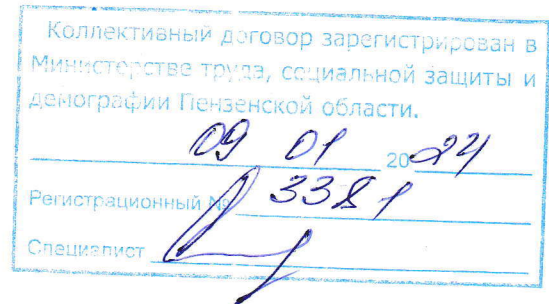 Коллективный договор зарегистрирован в
Министерстве труда, социальной защиты и
демографии Пензенской области.
09 01 2024
Регистрационный № 3381
Специалист